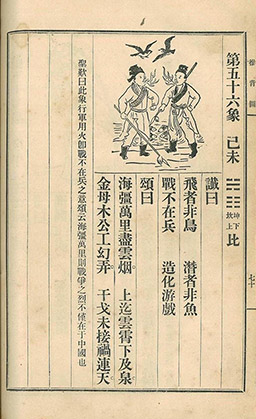 推背圖
七十
第五十六象 己未 坤下坎上 比
讖曰
飛者非鳥 潛者非魚
戰不在兵 造化游戲
頌曰
海疆萬里盡雲烟 上迄雲霄下及泉
金母木公工幻弄 干戈未接禍連天
聖歎曰此象行軍用火即戰不在兵之意頌云海疆萬里則戰爭之烈不僅在于中國也